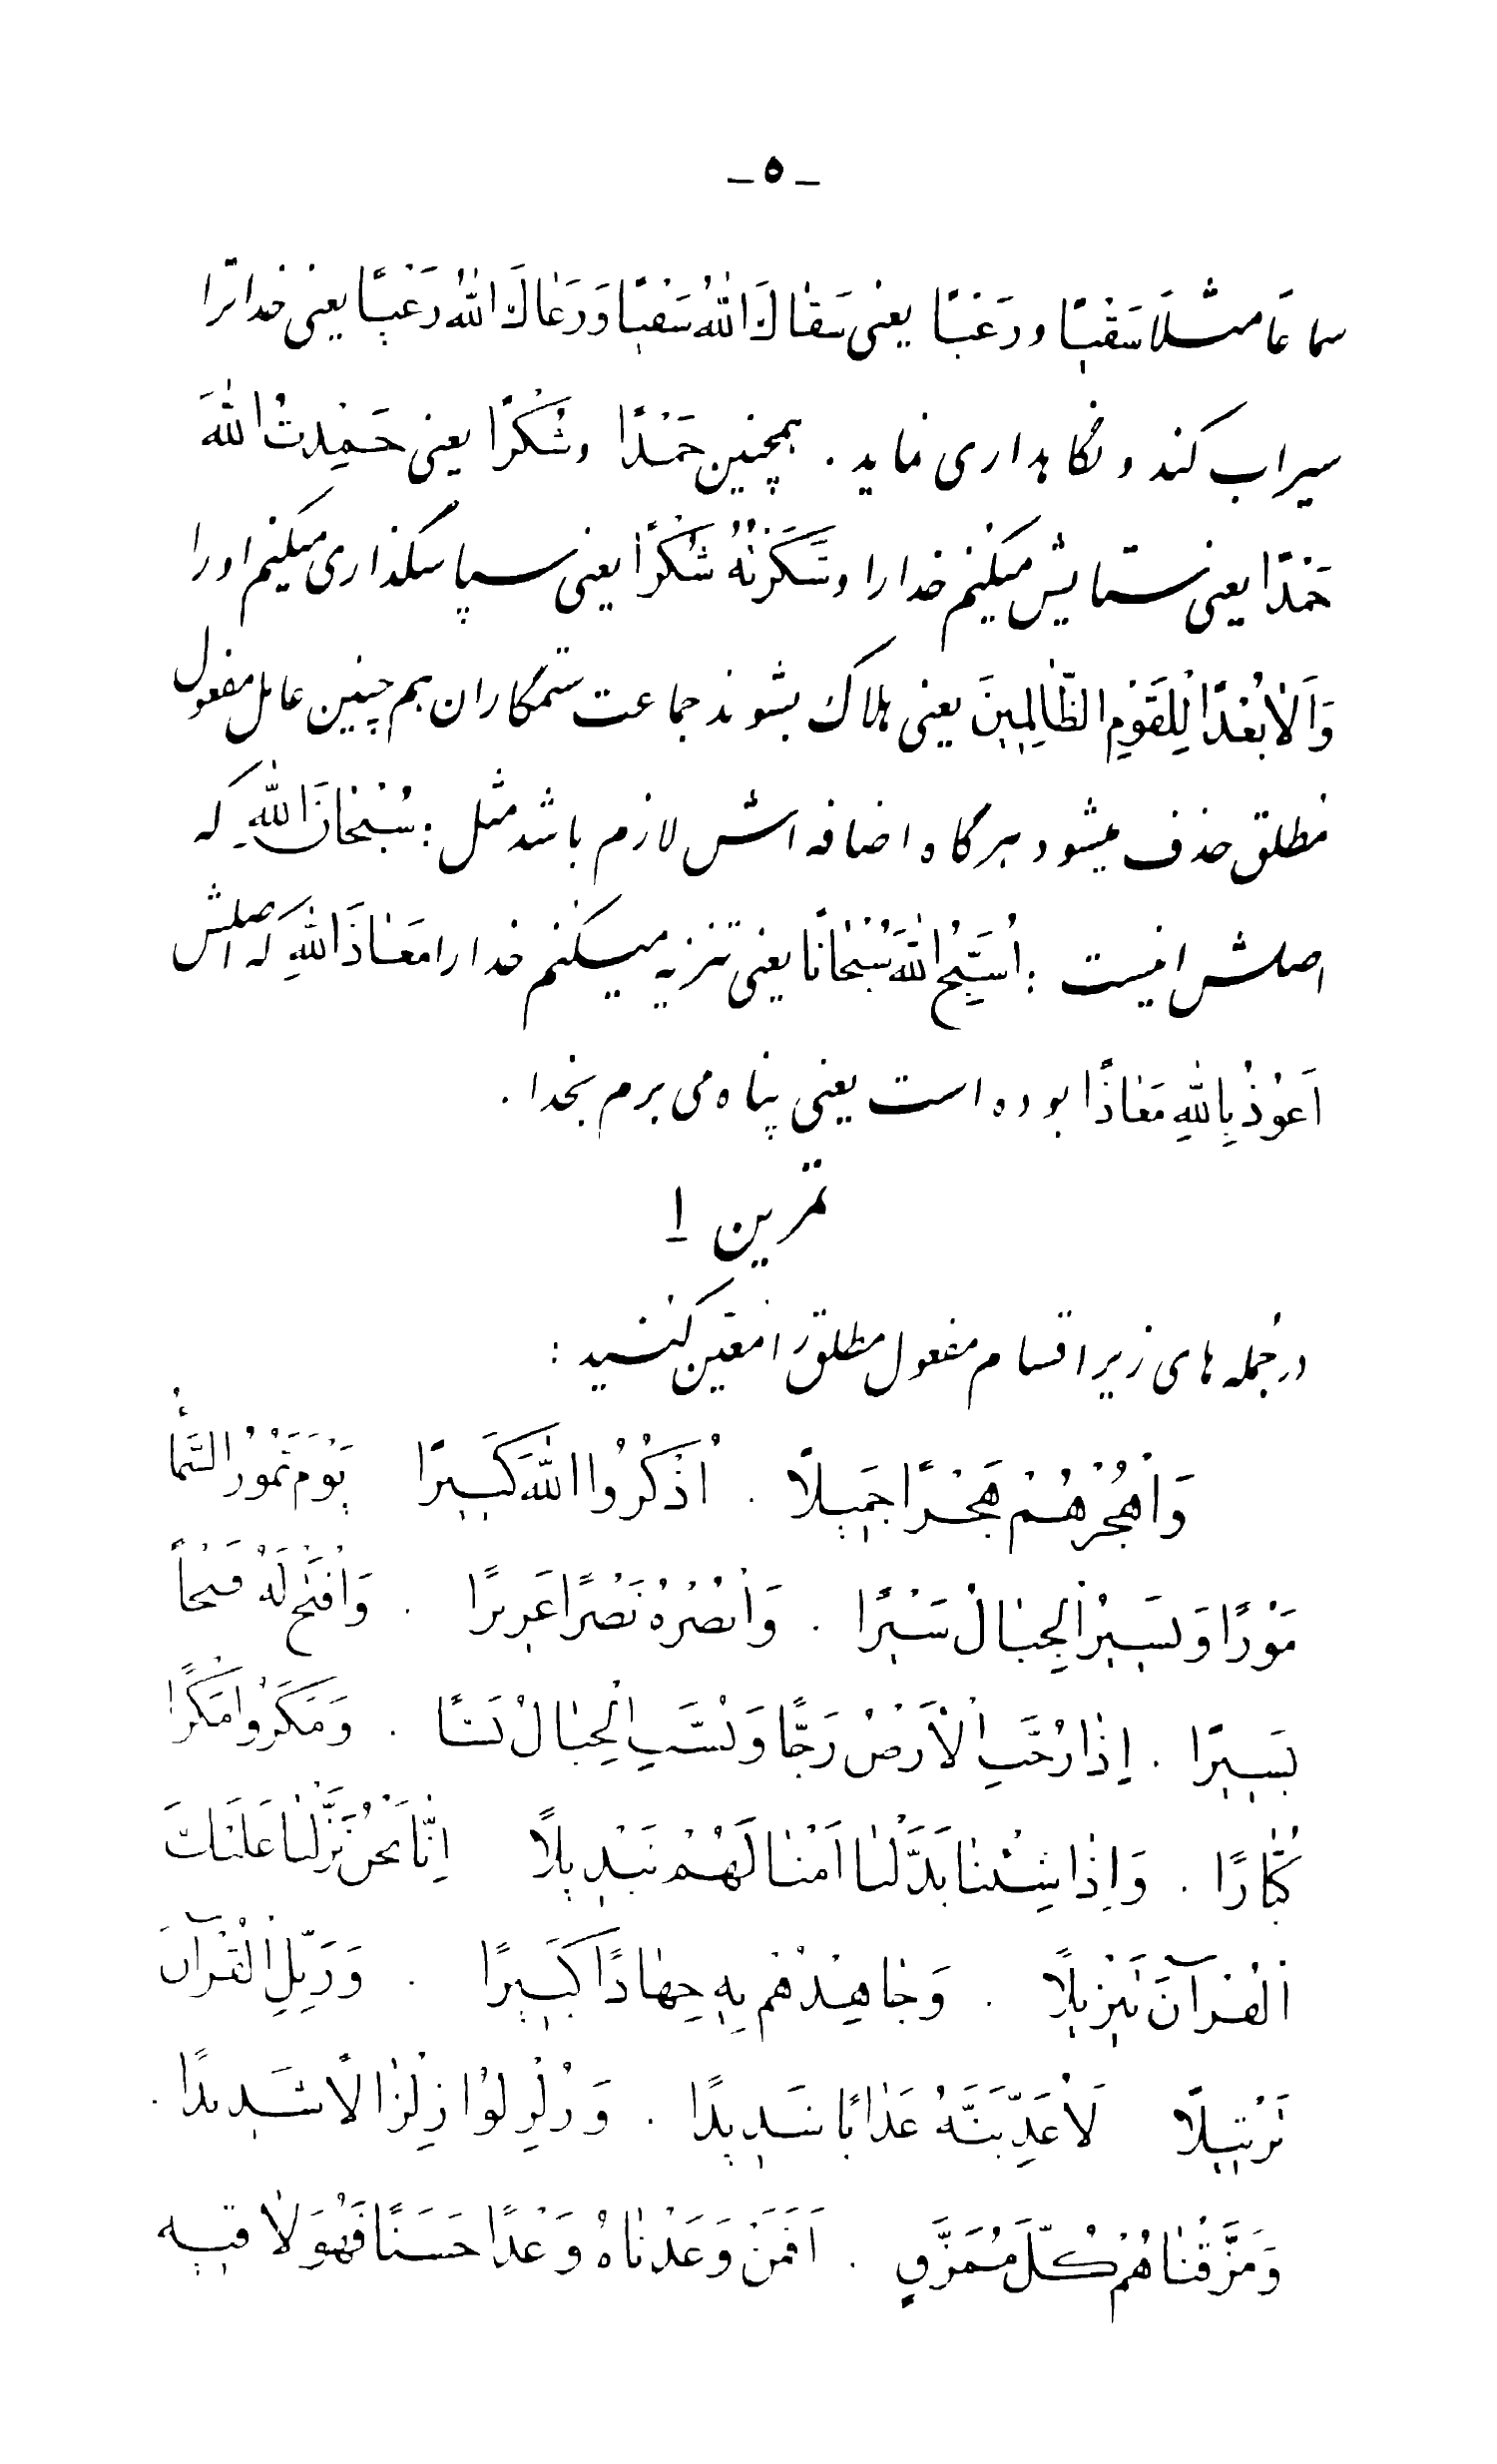 ـ ۵ ـ
سماعاً مثلاَ سَقْیًا ورَعْیًا یعنی سَقٰاكَ اللّٰهُ سَقْیًا وَرَعٰاكَ اللّٰهُ رَعْیًا یعنی خدا ترا
سیراب کند و نگاهداری نماید . همچنین حَمْدًا وشُکْرًا یعنی حَمِدْتُ اللّٰهَ
حَمْدًا یعنی ستایش میکنم خدا را وشَکَرْتُهُ شُکْرًا یعنی سپاسگذاری میکنم او را
وَاَلاٰ بُعْدًا لِلْقَوْمِ الظّٰالِمِینَ یعنی هلاک بشوند جماعت ستمگاران هم چنین عامل مفعول
مطلق حذف میشود هرگاه اضافه اش لازم باشد مثل : سُبْحٰانَ اللّٰهِ که
اصلش اینست : اُسَبِّحُ اللّٰهَ سُبْحٰانًا یعنی تنزیه میکنم خدا را مَعٰاذَ اللّٰهِ که اصلش
اَعُوْذُ بِاللّٰهِ مَعٰاذًا بوده است یعنی پناه می برم بخدا .
تمرین ۱
در جُمله های زیر اقسام مفعول مطلق را معیّن کنید :
وَاهْجُرْهُمْ هَجْرًا جَمِیلًا . اُذْکُرُوا اللّٰهَ کَبِیرًا یَوْمَ تَمُوْرُ السَّمٰاءُ
مَوْرًا وَ تَسِیرُ الْجِبٰالُ سَیْرًا . وَانْصُرْهُ نَصْرًا عَزِیزًا . وَافْتَحْ لَهُ فَتْحاً
یَسِیرًا . اِذٰا رُجَّتِ الْاَرْضُ رَجًّا وَ بُسَّتِ الْجِبٰالُ بَسًّا . وَ مَکَرُوا مَکْرًا
کُبّٰارًا . وَ اِذٰا شِئْنٰا بَدَّلْنٰا اَمْثٰالَهُمْ تَبْدِیلًا اِنّٰا نَحْنُ نَزَّلْنٰا عَلَیْكَ
الْقُرْآنَ تَنْزِیلًا . وَ جٰاهِدْهُمْ بِهِ جِهٰادًا کَبِیرًا . وَ رَتِّلِ الْقُرْآنَ
تَرْتِیلًا لَاُعَذِّبَنَّهُ عَذٰابًا شَدِیدًا . وَ زُلْزِلُوْا زِلْزٰالًا شَدِیدًا .
وَ مَزَّقْنٰاهُمْ کُلَّ مُمَزَّقٍ . اَفَمَنْ وَعَدْنٰاهُ وَعْدًا حَسَنًا فَهُوَ لاٰقیهِ